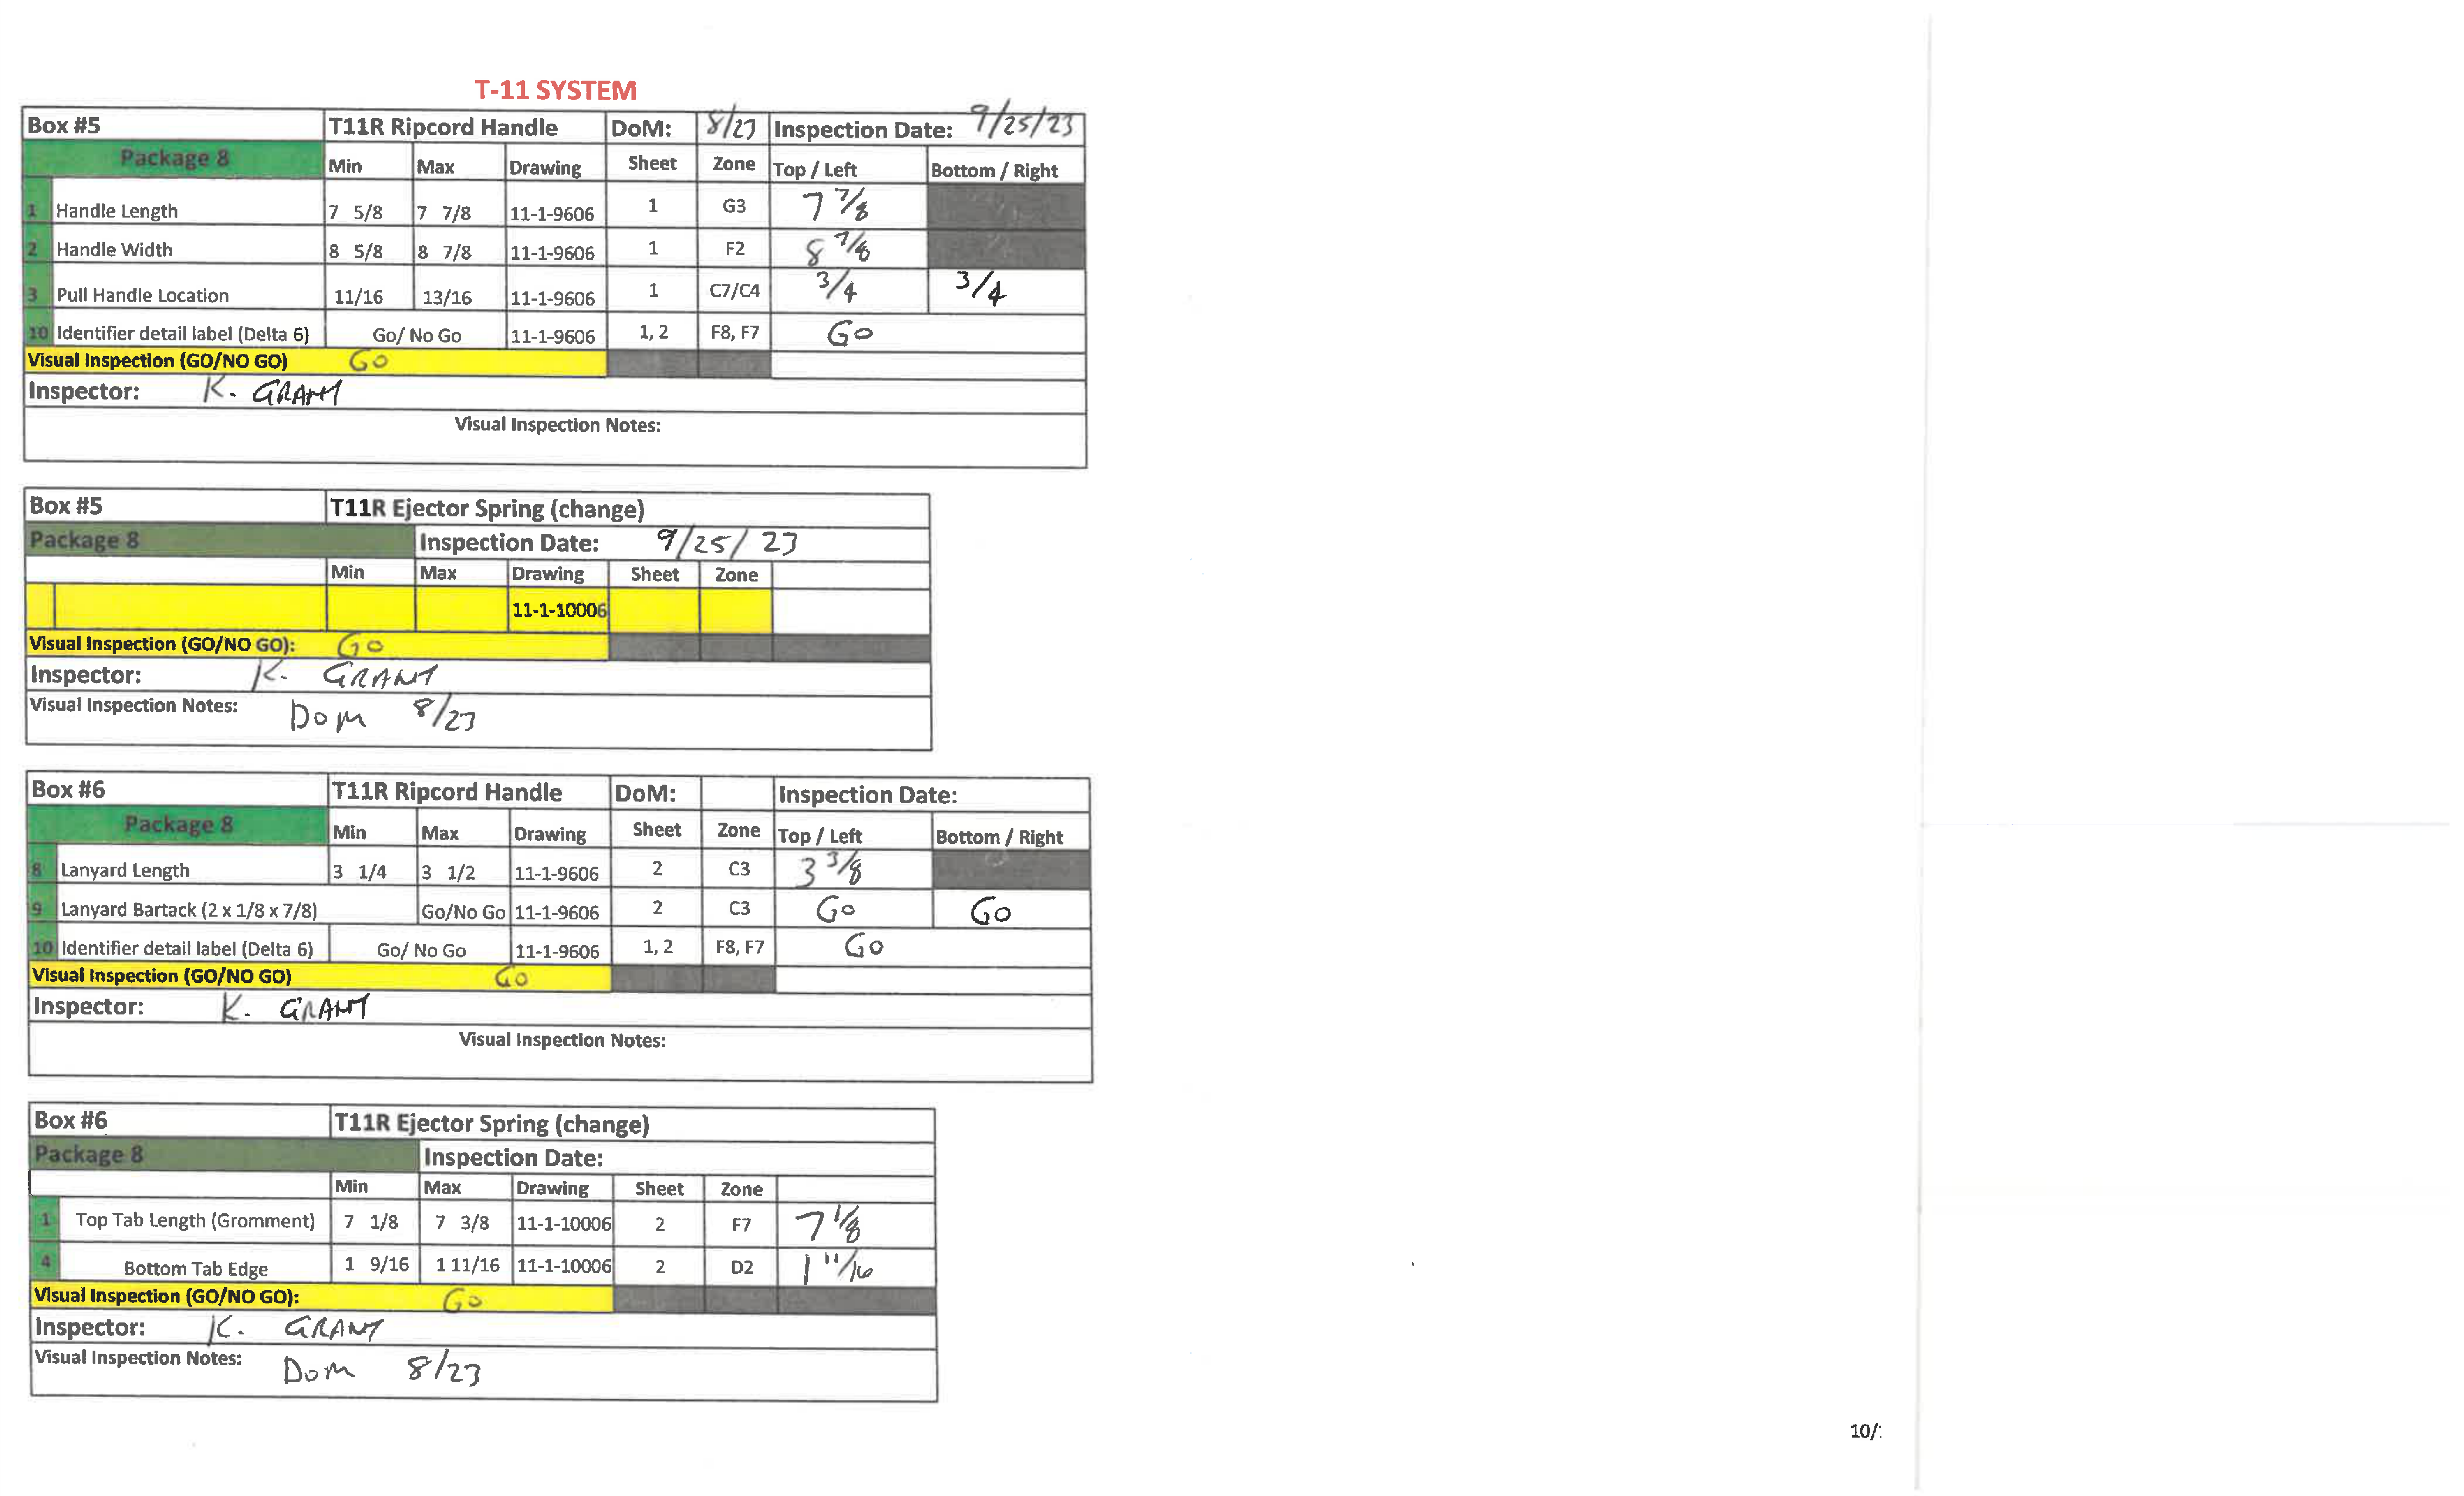 T-11 SYSTEM
Box #5 T11R Ripcord Handle DoM: 8/23 Inspection Date: 9/25/23
Package 8 Min Max Drawing Sheet Zone Top / Left Bottom / Right
1 Handle Length 7 5/8 7 7/8 11-1-9606 1 G3 7 7/8
2 Handle Width 8 5/8 8 7/8 11-1-9606 1 F2 8 7/8
3 Pull Handle Location 11/16 13/16 11-1-9606 1 C7/C4 3/4 3/4
10 Identifier detail label (Delta 6) Go/ No Go 11-1-9606 1, 2 F8, F7 Go
Visual Inspection (GO/NO GO) GO
Inspector: K. GRANT
Visual Inspection Notes:
Box #5 T11R Ejector Spring (change)
Package 8 Inspection Date: 9/25/23
Min Max Drawing Sheet Zone
11-1-10006
Visual Inspection (GO/NO GO): GO
Inspector: K. GRANT
Visual Inspection Notes: Dom 8/23
Box #6 T11R Ripcord Handle DoM: Inspection Date:
Package 8 Min Max Drawing Sheet Zone Top / Left Bottom / Right
8 Lanyard Length 3 1/4 3 1/2 11-1-9606 2 C3 3 3/8
9 Lanyard Bartack (2 x 1/8 x 7/8) Go/No Go 11-1-9606 2 C3 Go Go
10 Identifier detail label (Delta 6) Go/ No Go 11-1-9606 1, 2 F8, F7 Go
Visual Inspection (GO/NO GO) Go
Inspector: K. GRANT
Visual Inspection Notes:
Box #6 T11R Ejector Spring (change)
Package 8 Inspection Date:
Min Max Drawing Sheet Zone
1 Top Tab Length (Gromment) 7 1/8 7 3/8 11-1-10006 2 F7 7 1/8
4 Bottom Tab Edge 1 9/16 1 11/16 11-1-10006 2 D2 1 11/16
Visual Inspection (GO/NO GO): Go
Inspector: K. GRANT
Visual Inspection Notes: Dom 8/23
10/